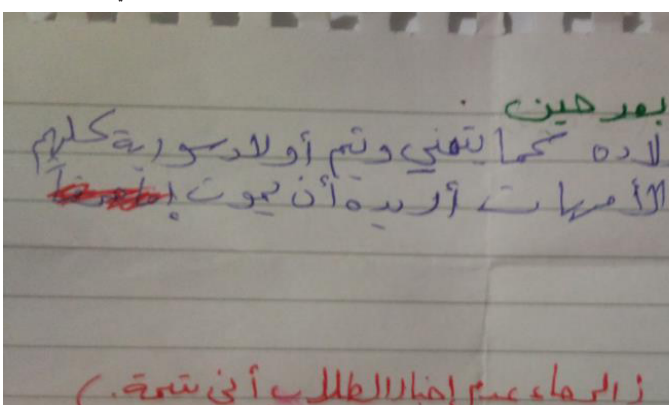 بعد حين
لاده كما يتمني ويتم أولاد سورية كلهم
الأمهات أريده أن يموت
( الرجاء عدم إخبار الطلاب أنني يتيمة. )